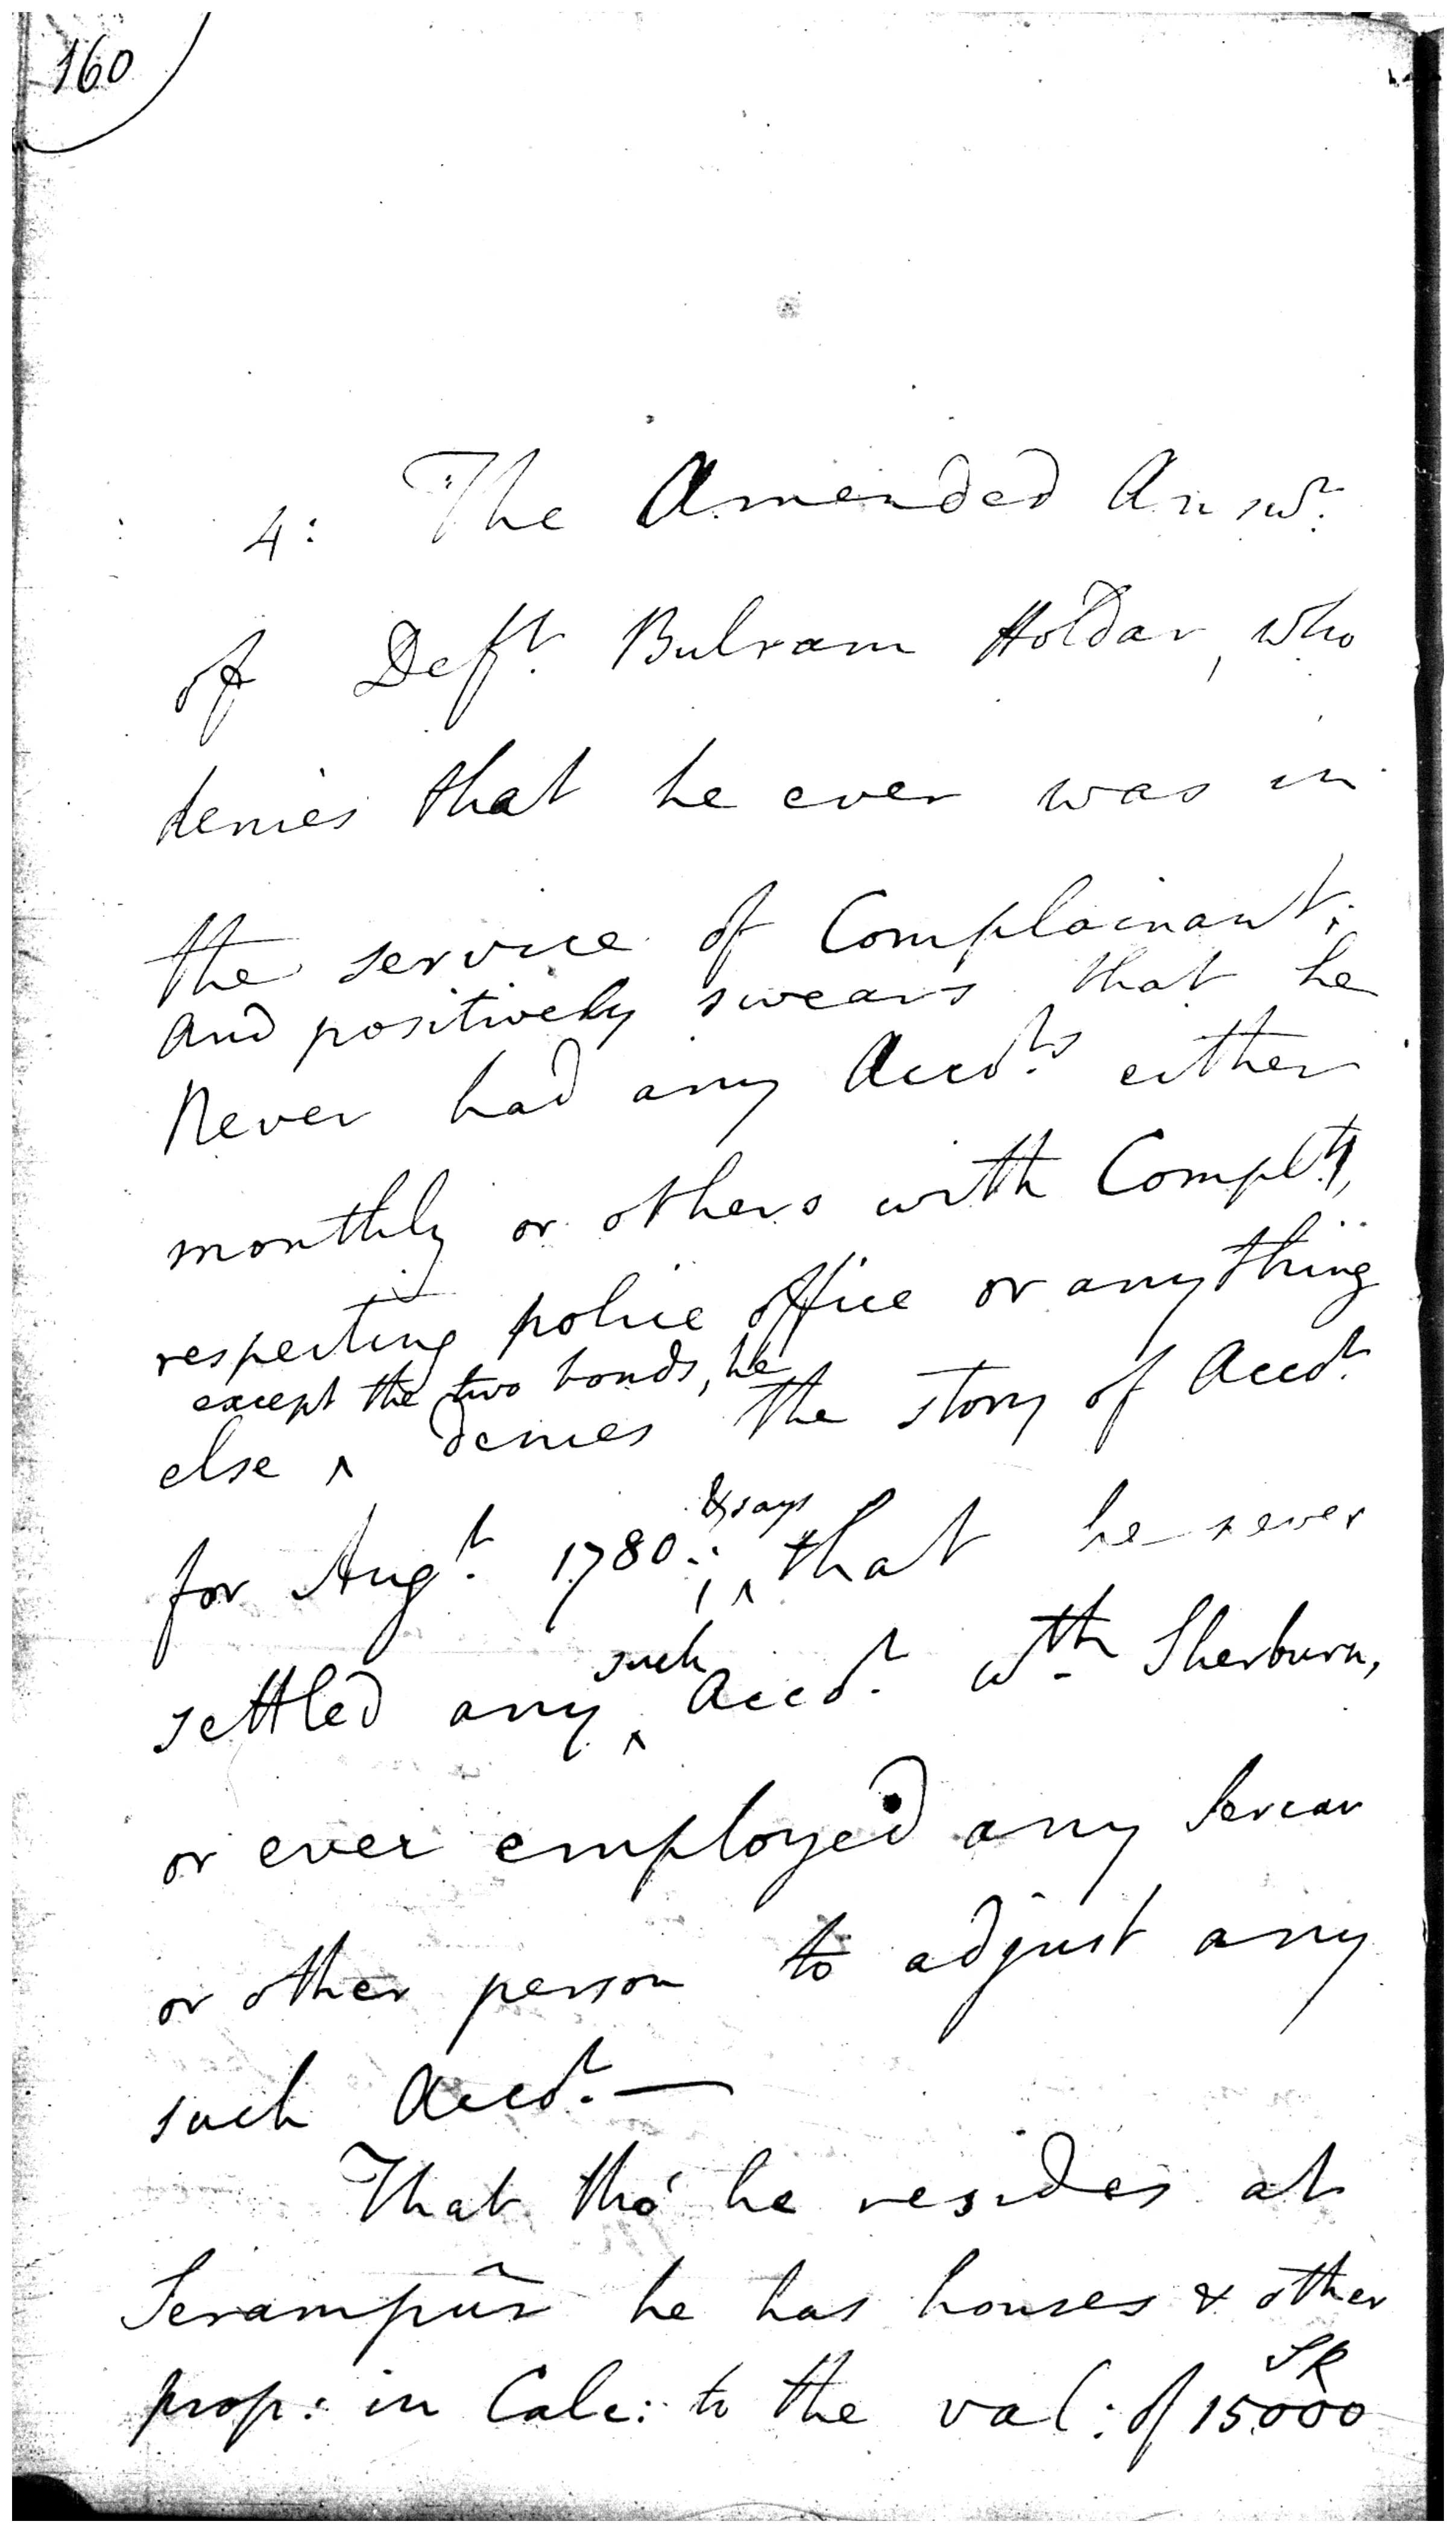 160
4: The Amended Answr.
of Deft. Bulram Holdar, who
denies that he ever was in
the service of Complainant;
and positively swears that he
Never had any Accots. either
monthly or others with Complt.,
respecting police office or any thing
except the two bonds, he
else ^ denies the story of Accot.
& says
for Augt. 1780.; ^ that he never
such
settled any ^ Accot. wth. Sherburn,
or ever employed any Sercar
or other person to adjust any
such Accot. —
That tho' he resides at
Serampûr he has houses & other
SR
prop: in Calc: to the val: of 15000